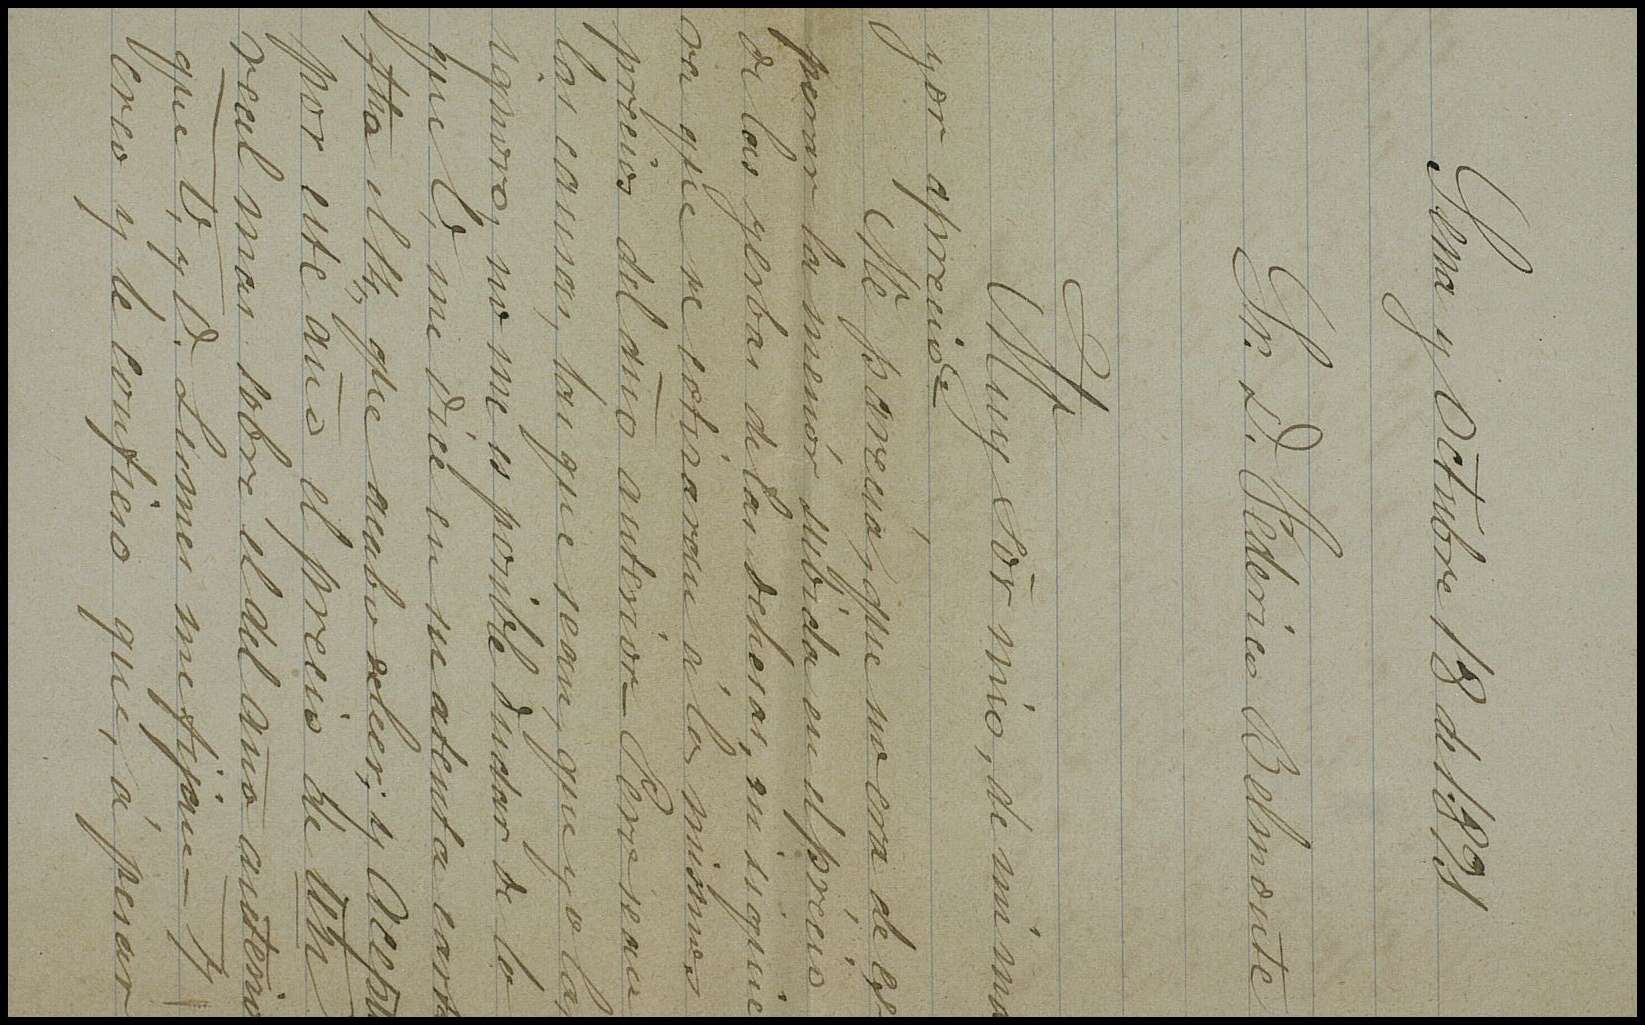 Serra y Octubre 13 de 1.898
Sr. D. Federico Belmonte
Muy Sõr mio, de mi ma
yor aprecio=
Me parecia, que no era de es
perar la menór subida en el précio
de las yerbas de las dehesas, ni siquie
ra que se cotizaran á los mismos
précios del año anterior= Pero sean
las causas, las que sean, que yo las
ignoro, no me es posible dudar de lo
que V, me dice en su atenta carta
ftha el 11, que acabo de leer; y acepto
por este año el precio de un
real mas sobre el del año anterior
que V, y D. Limes me fijan= Y
creo y le confieso que, á pesar